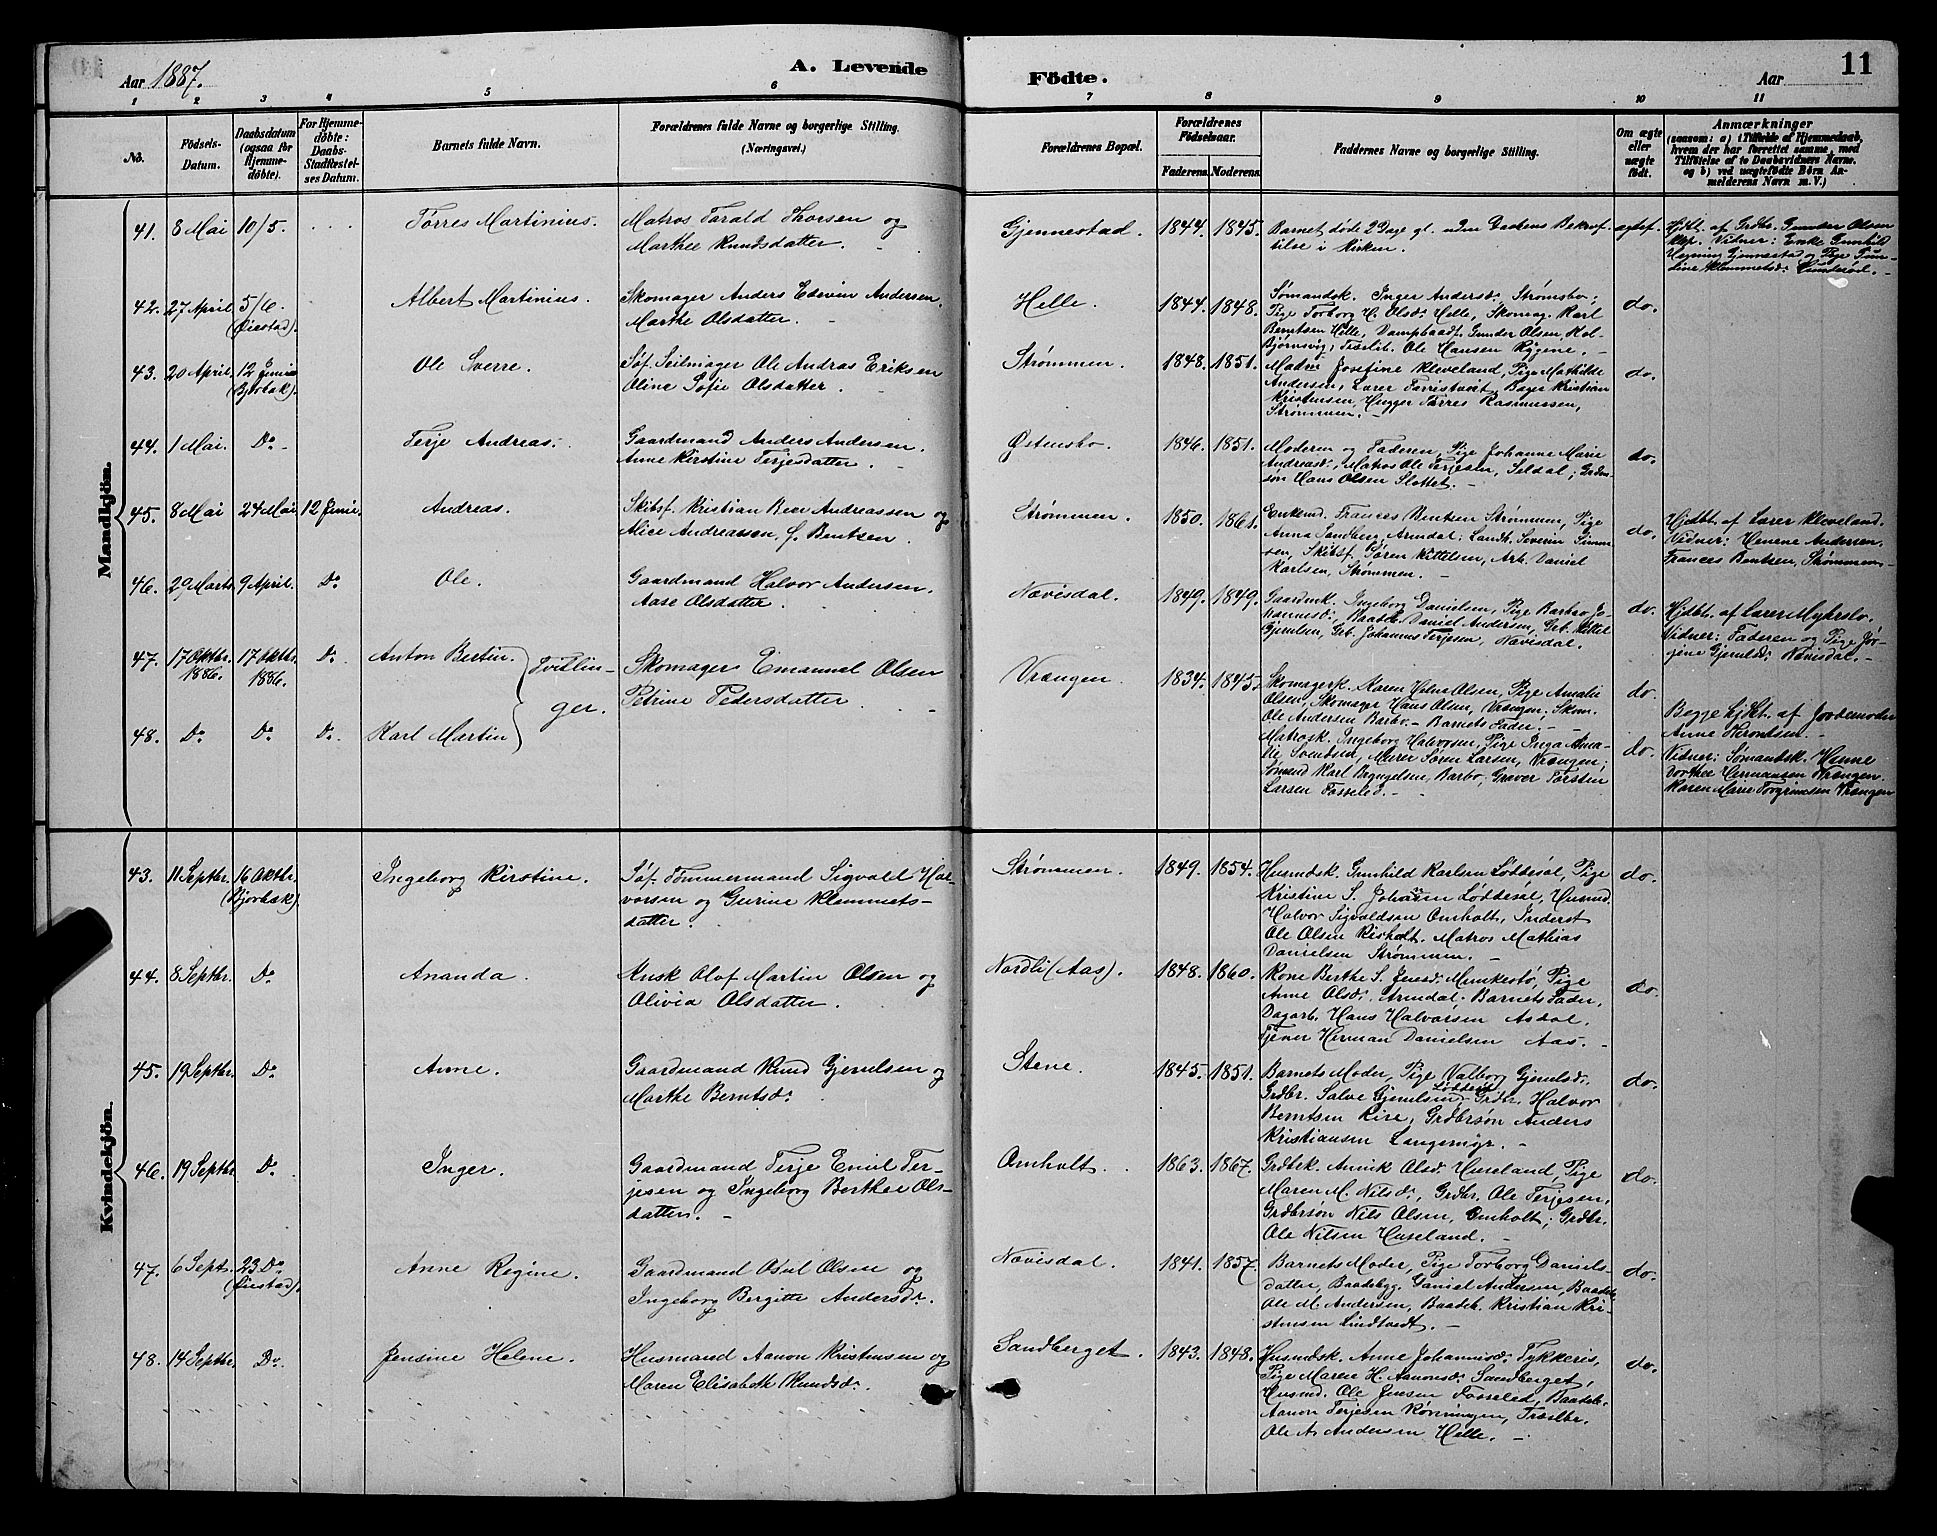 Aar 1887.
A. Levende
Födte.
Aar
11
1 2 3 4 5 6 7 8 9 10 11
No.
Födsels-
Datum.
Daabsdatum
(ogsaa for
Hjemme-
döbte).
For Hjemme-
döbte:
Daabs-
Stadfæstel-
ses Datum.
Barnets fulde Navn.
Forældrenes fulde Navne og borgerlige Stilling.
(Næringsvei.)
Forældrenes Bopæl.
Forældrenes
Födselsaar.
Faderens. Moderens.
Faddernes Navne og borgerlige Stilling.
Om ægte
eller
uægte
födt.
Anmærkninger
(saasom: a) i Tilfælde af Hjemmedaab,
hvem der har forrettet samme, med
Tilföielse af to Daabsvidners Navne,
og b) ved uægtefödte Börn An-
melderens Navn m. V.)
Mandkjön.
41. 8 Mai 10/5. . . . Tørres Martinius.
Matros Tarald Thorsen og
Marthee Knudsdatter.
Gjennestad. 1844. 1845.
Barnet døde 2 Dage gl. uden Daabens Bekræf-
telse i Kirken.
ægtef.
Hjdbt. af Grdbr. Gunder Olsen
Vidner: Enke Gunhild
Gjennestad og Pige
Klemmetsd.
42. 27 April 5/6. (Øiestad). Albert Martinius.
Skomager Anders Edevin Andersen.
Marthe Olsdatter.
Helle. 1844. 1848.
Sømandsk. Inger Andersd. Strømsbo;
Pige Torborg H. Olsd. Helle, Skomag. Karl
Berntsen Helle, Dampbaadf. Gunder Olsen, Kol-
bjørnsvig, Ole Hansen Rygene.
do.
43. 20 April. 12 Junii (Bjorbæk). Ole Sverre.
Søf. Seilmager Ole Andras Eriksen
Oline Sofie Olsdatter.
Strømmen. 1848. 1851.
Madm Josefine Kleveland, Pige Mathilde
Andersen, Lærer Bager Kristian
Kristensen, Hugger Tørres Rasmussen,
Strømmen.
do.
44. 1 Mai. Do Terje Andreas.
Gaardmand Anders Andersen.
Anne Kirstine Terjesdatter.
Østensbo. 1846. 1851.
Moderen og Faderen, Pige Johanne Marie
Andreasd., Matros Ole Terjesen, Seldal;
søn Hans Olsen Slottet.
do.
45. 8 Mai 24 Mai 12 Junii. Andreas.
Skibsf. Kristian Andreassen og
Alice Andreassen, f. Bentsen.
Strømmen. 1850. 1861.
Enkemd. Frances Bentsen Strømmen, Pige
Anna Sandberg, Arendal; Severin Simon-
sen, Skibsf. Søren Kittelsen, Arb. Daniel
Karlsen, Strømmen.
do.
Hjdbt. af Lærer Kleveland.
Vidner: Andersen,
Frances Bentsen, Strømmen.
46. 29 Marts 9 April. Do. Ole.
Gaardmand Halvor Andersen.
Aase Olsdatter.
Nævisdal. 1849. 1849.
Gaardmk. Ingeborg Danielsen, Pige Barbro Jo-
hannesd., Daniel Andersen, Gbr. Kittel
Gjerulsen, Gbr. Johannes Terjesen, Nævisdal.
do.
Hjdbt. af Lærer Myhrslo.
Vidner: Faderen og Pige Jør-
gine Gjerulsd. Nævisdal.
47. 17 Oktbr. 1886. 17 Oktbr. 1886. Do. Anton Bertin.
Tvillin-
ger.
Skomager Emanuel Olsen
Petrine Pedersdatter
Vrangen 1834. 1845.
Skomagerk. Karen Helene Olsen, Pige Amalie
Olsen, Skomager Hans Olsen, Vrangen, Skom.
Ole Andersen Barbo. Barnets Fader.
do
48. Do Do Do. Karl Martin
Matrosk. Ingeborg Halvorsen, Pige Inga Ama-
lie Svendsen, Murer Søren Larsen, Vrangen;
Sømand Karl Barbo, Graver Torsten
Larsen Fosseled.
do.
Begge hjdbt. af Jordemoder
Anne
Vidner: Sømandsk. Hanne
Dorthee Hermansen Vrangen.
Karen Marie Torgrimsen Vrangen
Kvindekjön.
43. 11 Septbr. 16 Oktbr. (Bjorbæk). Ingeborg Kirstine.
Søf. Tømmermand Sigvald Hal-
vorsen og Gurine Klemmets-
datter.
Strømmen. 1849. 1854.
Husmdsk. Gunhild Karlsen Løddesøl, Pige
Kristine S. Johansen Løddesøl, Husmd.
Halvor Sigvaldsen Omholt, Inderst
Ole Olsen Risholt, Matros Mathias
Danielsen Strømmen.
do.
44. 8 Septbr. Do Ananda.
Olof Martin Olsen og
Olivia Olsdatter.
Nordli (Aas). 1848. 1860.
Kone Berthe S. Jensd. Munkestø, Pige
Anne Olsd. Arendal. Barnets Fader,
Dagarb. Hans Halvorsen Asdal,
Tjener Herman Danielsen Aas.
do.
45. 19 Septbr. Do Anne.
Gaardmand Knud Gjerulsen og
Marthe Berntsd.
Stene. 1845. 1851.
Barnets Moder, Pige Valborg Gjerulsd.
Grdbr. Salve Gjerulsen Løddesøl Grdbr. Halvor
Berntsen Rise, Grdbrsøn Anders
Kristiansen Langemyr.
do.
46. 19 Septbr. Do. Inger.
Gaardmand Terje Emil Ter-
jesen og Ingeborg Berthee Ols-
datter.
Omholt. 1863. 1867.
Grdbsk. Annik Olsd. Huseland, Pige
Maren M. Nilsd., Grdbr. Ole Terjesen,
Grdbrsøn Nils Olsen, Omholt; Grdbr.
Ole Nilsen Huseland.
do.
47. 6 Sept. 23 Do (Øiestad). Anne Regine.
Gaardmand Osul Olsen og
Ingeborg Bergitte Andersdr.
Nævisdal. 1841. 1857.
Barnets Moder, Pige Torborg Daniels-
datter, Baadsbygg. Daniel Andersen, Baadsb.
Ole M. Andersen, Baadsb. Kristian Kri-
stensen Lindtvedt.
do.
48. 14 Septbr. Do. Jensine Helene.
Husmand Aanon Kristensen og
Maren Elisabeth Knudsd.
Sandberget. 1843. 1848.
Husmdsk. Anne Johannesd. Tykkeris,
Pige Maren H. Aanonsd. Sandberget,
Husmd. Ole Jensen Fosseled, Baadsb.
Aanon Terjesen Røiningen,
Ole A. Andersen Helle.
do.